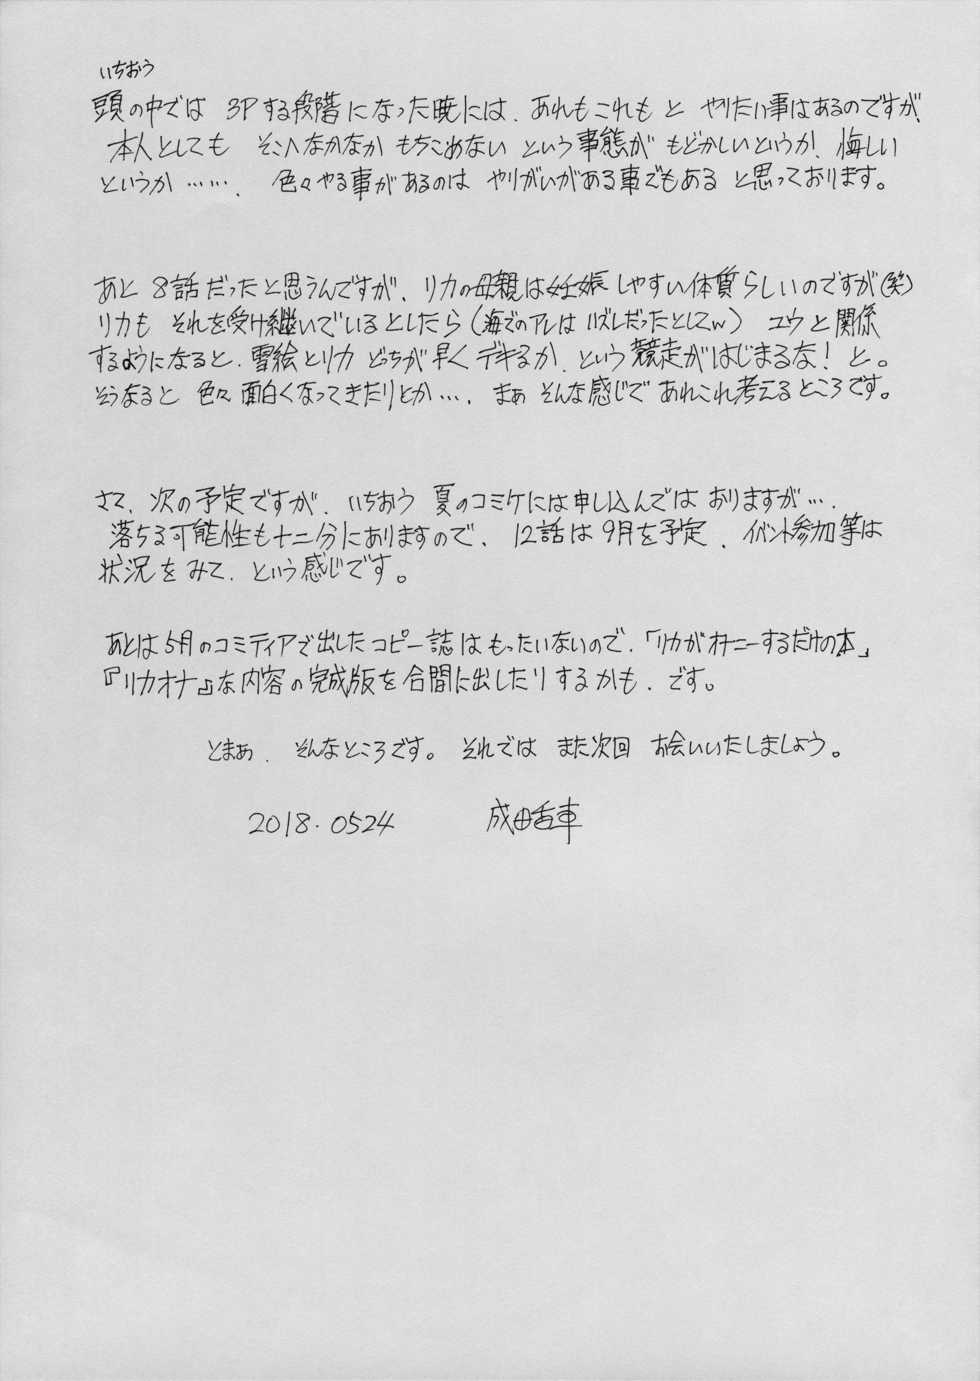 いちおう
頭の中では 3Pする段階になった暁には、あれもこれもと やりたい事はあるのですが、
本人としても そこへなかなか もちこめない という事態が もどかしいというか、悔しい
というか……、 色々やる事があるのは やりがいがある事でもある と思っております。
あと 8話だったと思うんですが、リカの母親は妊娠しやすい体質らしいのですが(笑)
リカも それを受け継いでいるとしたら(海でのアレは ハズレだったとしてw) ユウと関係
するようになると、雪絵とリカ どっちが早くデキるか、という競走がはじまるな!と。
そうなると 色々面白くなってきたりとか…、まぁ そんな感じで あれこれ考えるところです。
さて、次の予定ですが、いちおう 夏のコミケには申し込んではおりますが…、
落ちる可能性も十二分にありますので、12話は9月を予定、イベント参加等は
状況をみて、という感じです。
あとは5月のコミティアで出したコピー誌はもったいないので、「リカがオナニーするだけの本」
『リカオナ』な内容の完成版を合間に出したりするかも、です。
とまぁ、そんなところです。それでは また次回 お会いいたしましょう。
2018.0524 成田香車